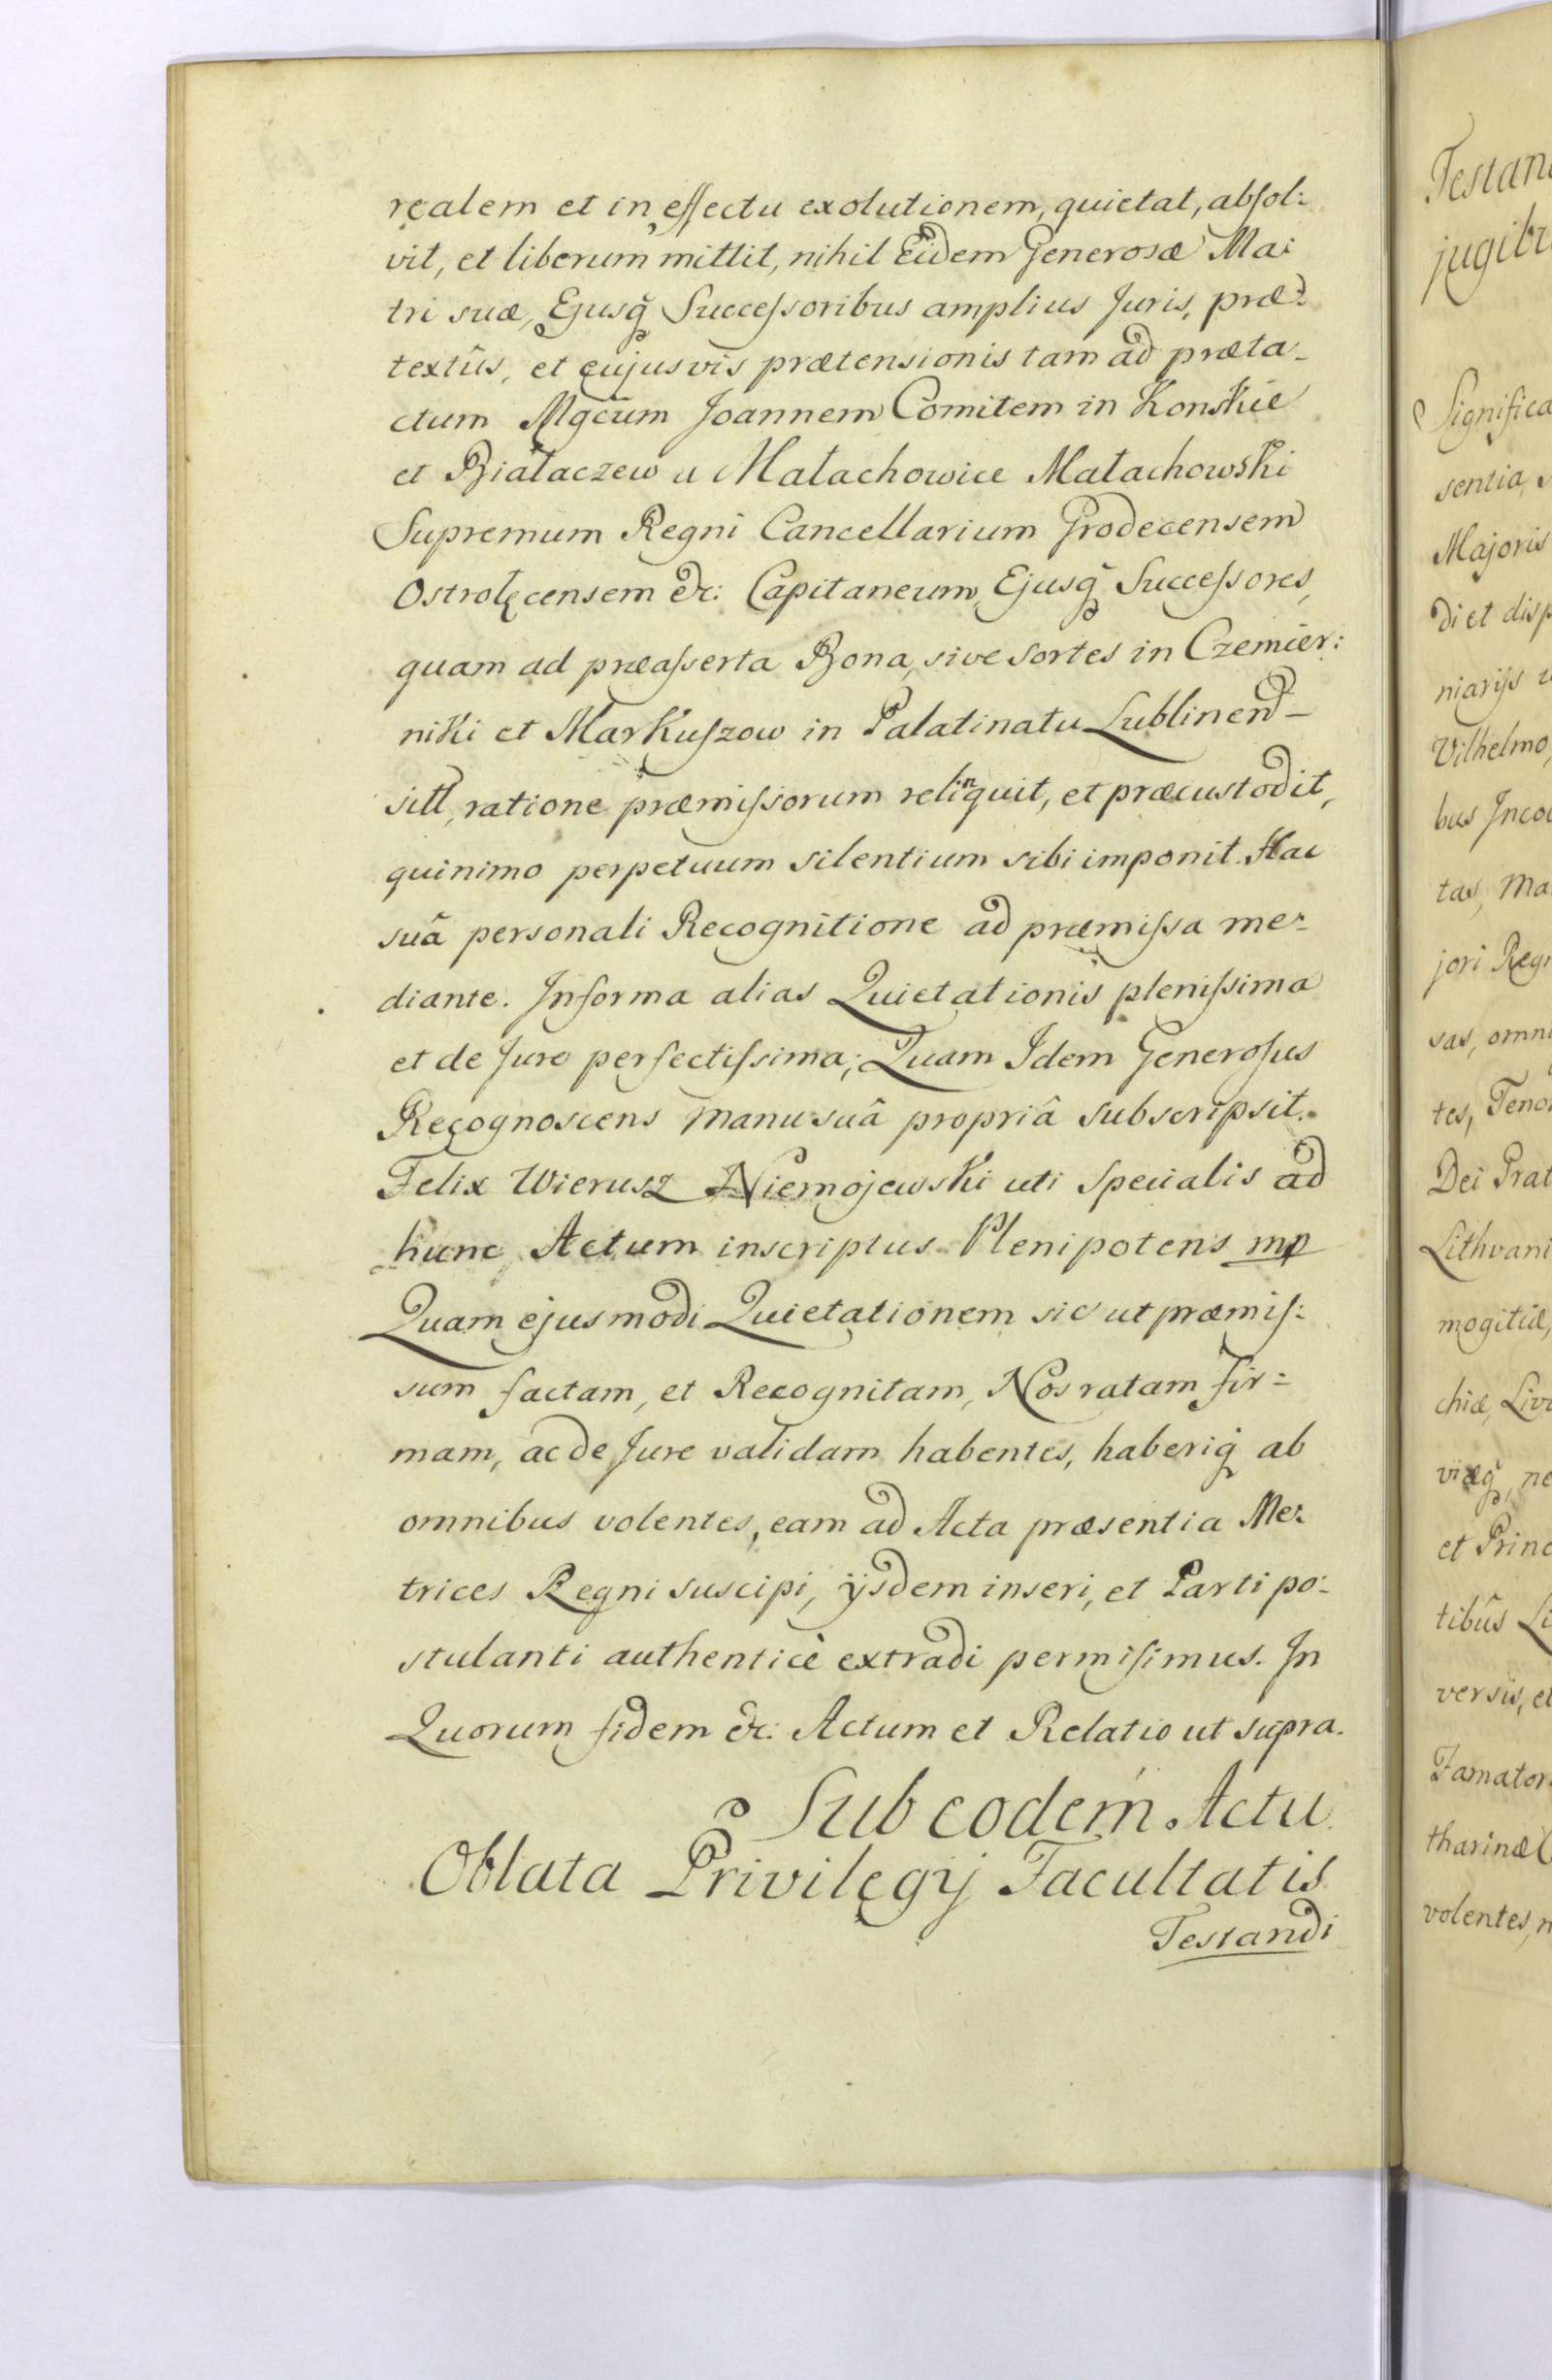 realem et in effectu exolutionem, quietat, absol:
vit, et liberum mittit, nihil Eidem Generosæ Ma:
tri suæ, Ejusq̃ Successoribus amplius Juris, præ:
textûs, et cujusvis prætensionis tam ad præta-
ctum Mgcum Joannem Comitem in Konskie
et Białaczew a Małachowice Małachowski
Supremum Regni Cancellarium Grodecensem
Ostrolęcensem &c: Capitaneum, Ejusq̃ Successores,
quam ad præasserta Bona, sive sortes in Czemier:
niki et Markuszow in Palatinatu Lublinen-
sitt, ratione præmissorum relinquit, et præcustodit,
quinimo perpetuum silentium sibi imponit. Hac
suâ personali Recognitione ad præmissa me-
diante. In forma alias Quietationis plenissima
et de Jure perfectissima; Quam Idem Generosus
Recognoscens manu suâ propriâ subscripsit.
Felix Wierusz Niemojewski uti specialis ad
hunc Actum inscriptus Plenipotens mp
Quam ejusmodi Quietationem sic ut præmis:
sum factam, et Recognitam, Nos ratam fir:
mam, ac de Jure validam habentes, haberiq̃ ab
omnibus volentes, eam ad Acta præsentia Me:
trices Regni suscipi, ijsdem inseri, et Parti po:
stulanti authenticè extradi permisimus. In
Quorum fidem &c: Actum et Relatio ut supra.
Sub eodem Actu
Oblata Privilegij Facultatis
Testandi
jugib
Significa
sentia
Majoris
di et disp
niarijs
Vilhelmo,
bus Inco
tas, Ma
jori Reg
sas, omn
tes, Teno
Dei Grat
Lithvani
mogitiæ,
chiæ, Liv
viæq̃, ne
et Princ
tibûs Li
versis, et
Famator
tharinæ
volentes, n